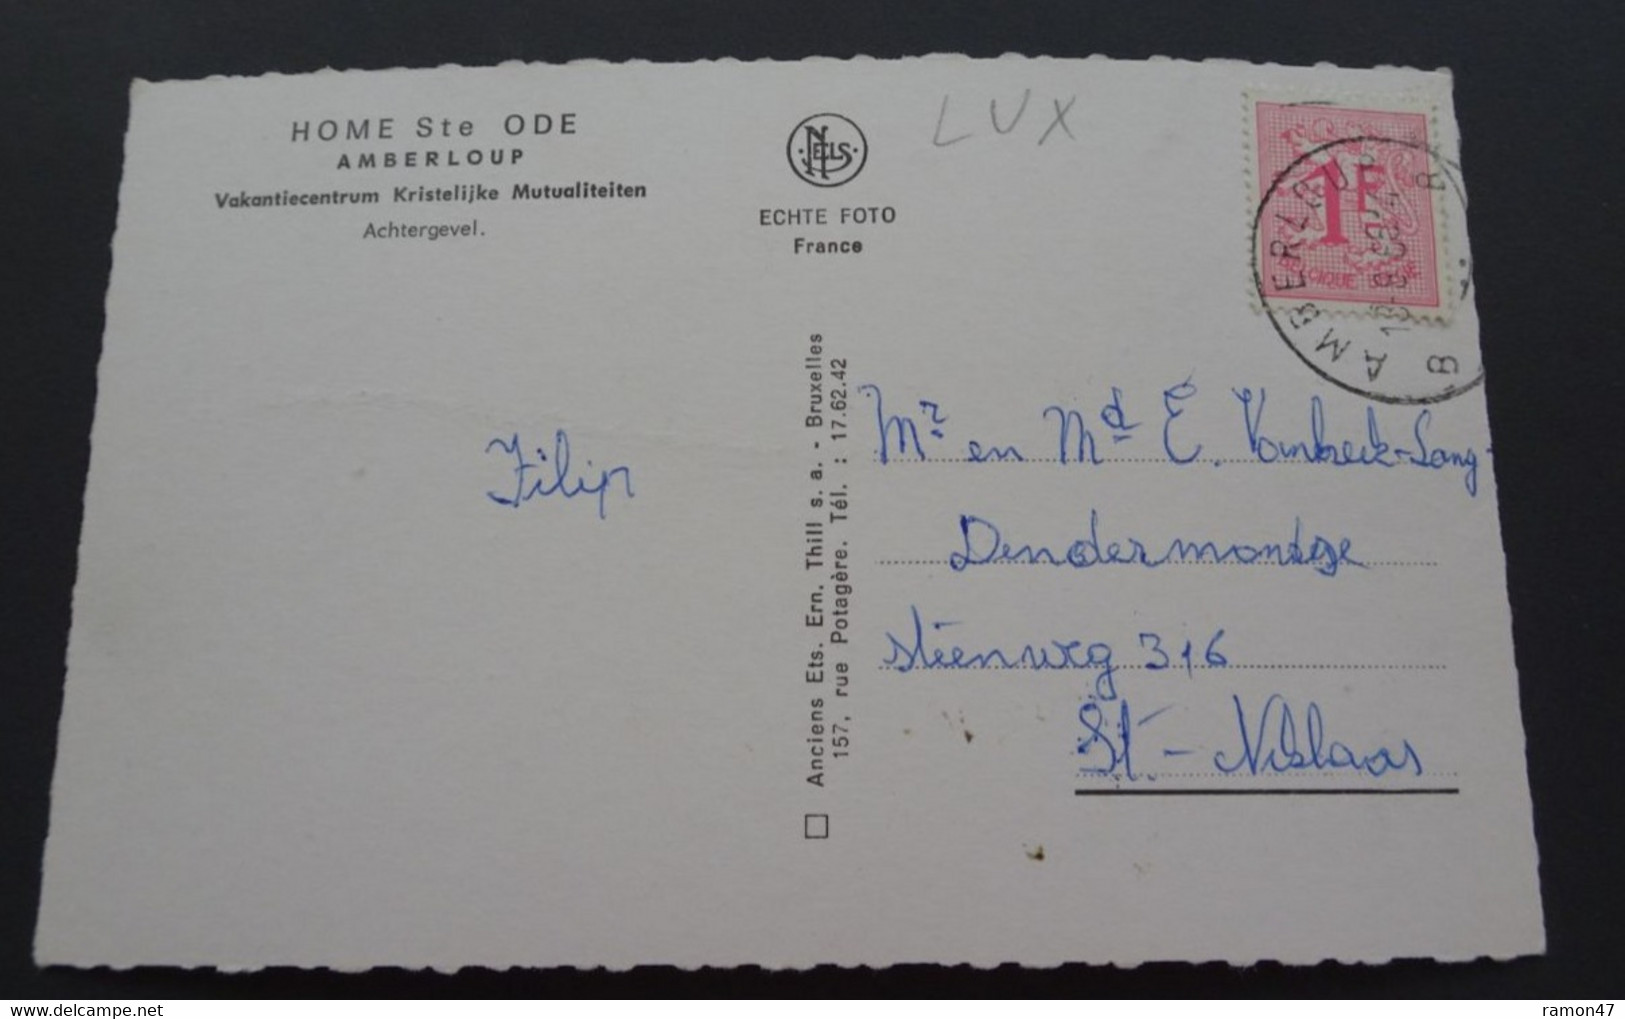 HOME Ste ODE
AMBERLOUP
Vakantiecentrum Kristelijke Mutualiteiten
Achtergevel.
NELS
ECHTE FOTO
France
LUX
1F
BELGIQUE BELGIE
AMBERLOUP
B B
Anciens Ets. Ern. Thill s. a. - Bruxelles
157, rue Potagère. Tél. : 17.62.42
Filip
Mr en Md E. Vanbeek-Song
Dendermondse
steenweg 316
St.-Niklaas
ramon47